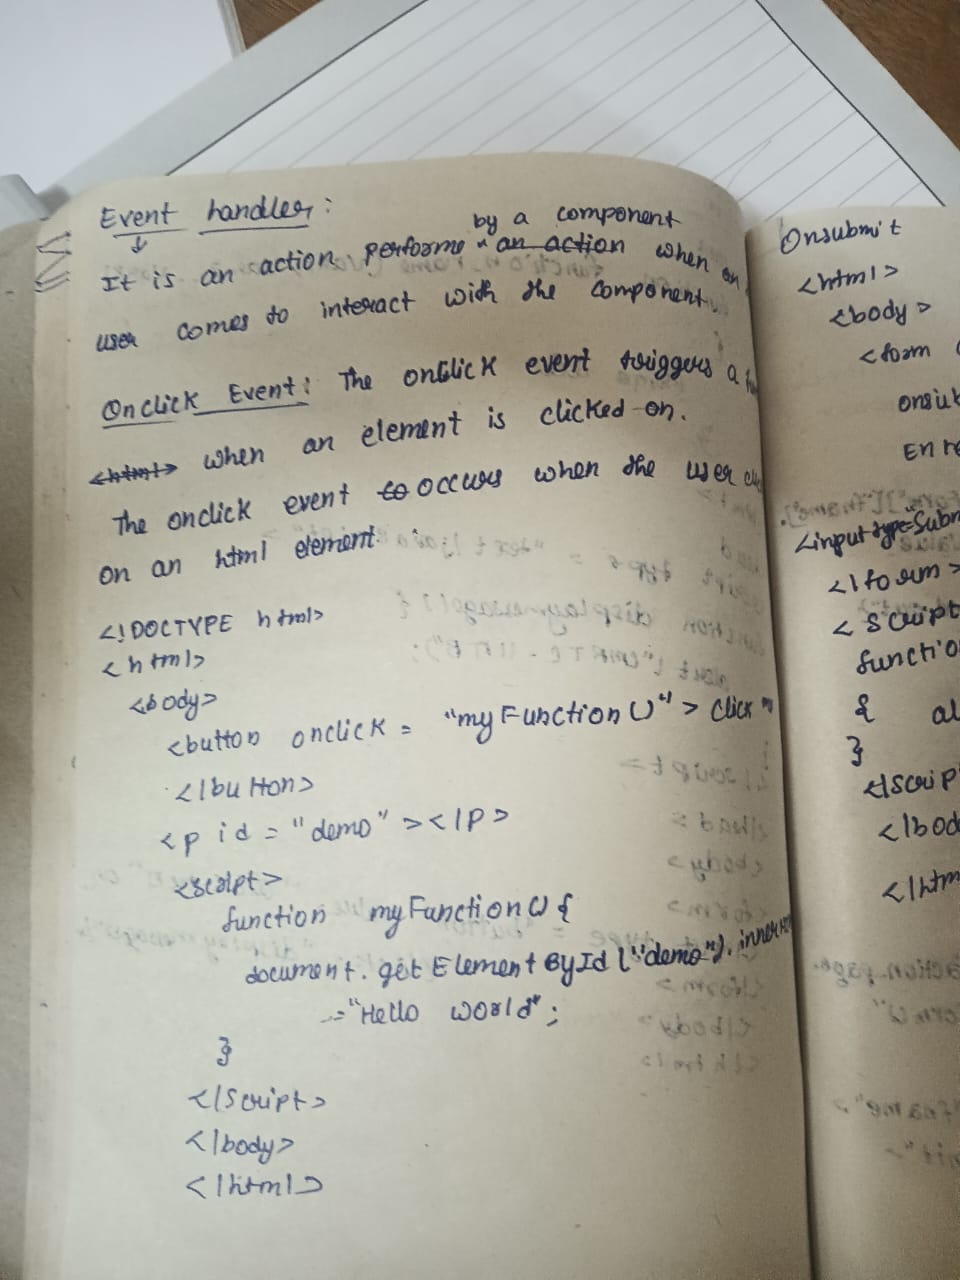 Event handler:
by a component
It is an action performs an action when an
user comes to interact with the component
Onclick Event: The onclick event triggers a
<html> when an element is clicked on.
The onclick event to occurs when the user
on an html element.
<!DOCTYPE html>
<html>
<body>
<button onclick = "myFunction()"> Click
</button>
<p id = "demo"></p>
<script>
function myFunction() {
document.getElementById("demo").
="Hello world";
}
</script>
</body>
</html>
Onsubmit
<html>
<body>
<form
<input type="Subm
</form>
<script
function
{
}
</scrip
</bod
</htm